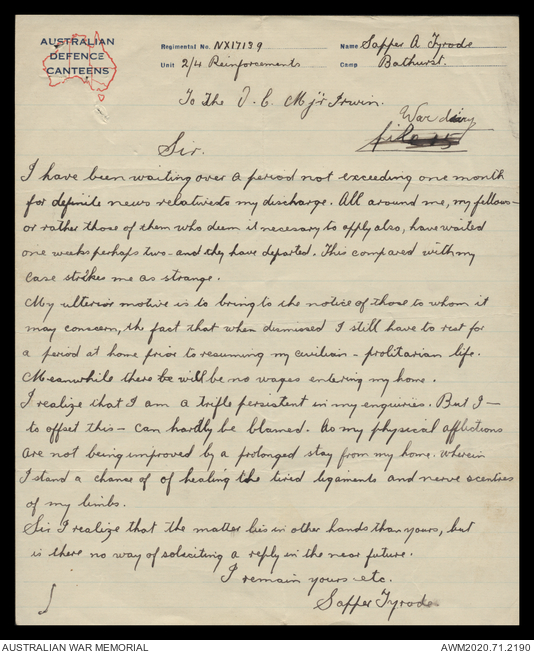 AUSTRALIAN
DEFENCE
CANTEENS
Regimental No. NX17139 Name Sapper A Tyrode
Unit 2/4 Reinforcements Camp Bathurst.
To The O. C. Mj'r Irwin.
War diary
file
Sir.
I have been waiting over a period not exceeding one month
for definite news relative to my discharge. All around me, my fellows -
or rather those of them who deem it necessary to apply also, have waited
one weeks perhaps two - and they have departed. This compared with my
case strikes me as strange.
My ulterior motive is to bring to the notice of those to whom it
may concern, the fact that when dismissed I still have to rest for
a period at home prior to resuming my civilian - prolitarian life.
Meanwhile there be will be no wages entering my home.
I realize that I am a trifle persistent in my enquiries. But I -
to offset this - can hardly be blamed. As my physical afflictions
are not being improved by a prolonged stay from my home. Wherein
I stand a chance of of healing the tired ligaments and nerve scentres
of my limbs.
Sir I realize that the matter lies in other hands than yours, but
is there no way of soliciting a reply in the near future.
I remain yours etc.
Sapper Tyrode
AUSTRALIAN WAR MEMORIAL AWM2020.71.2190